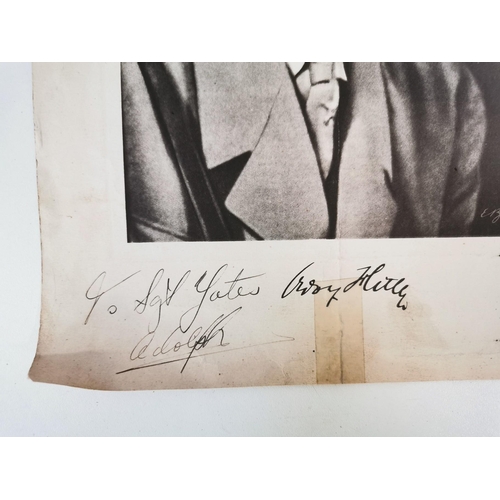 To Sgt Yates Adolf Hitler
Adolph